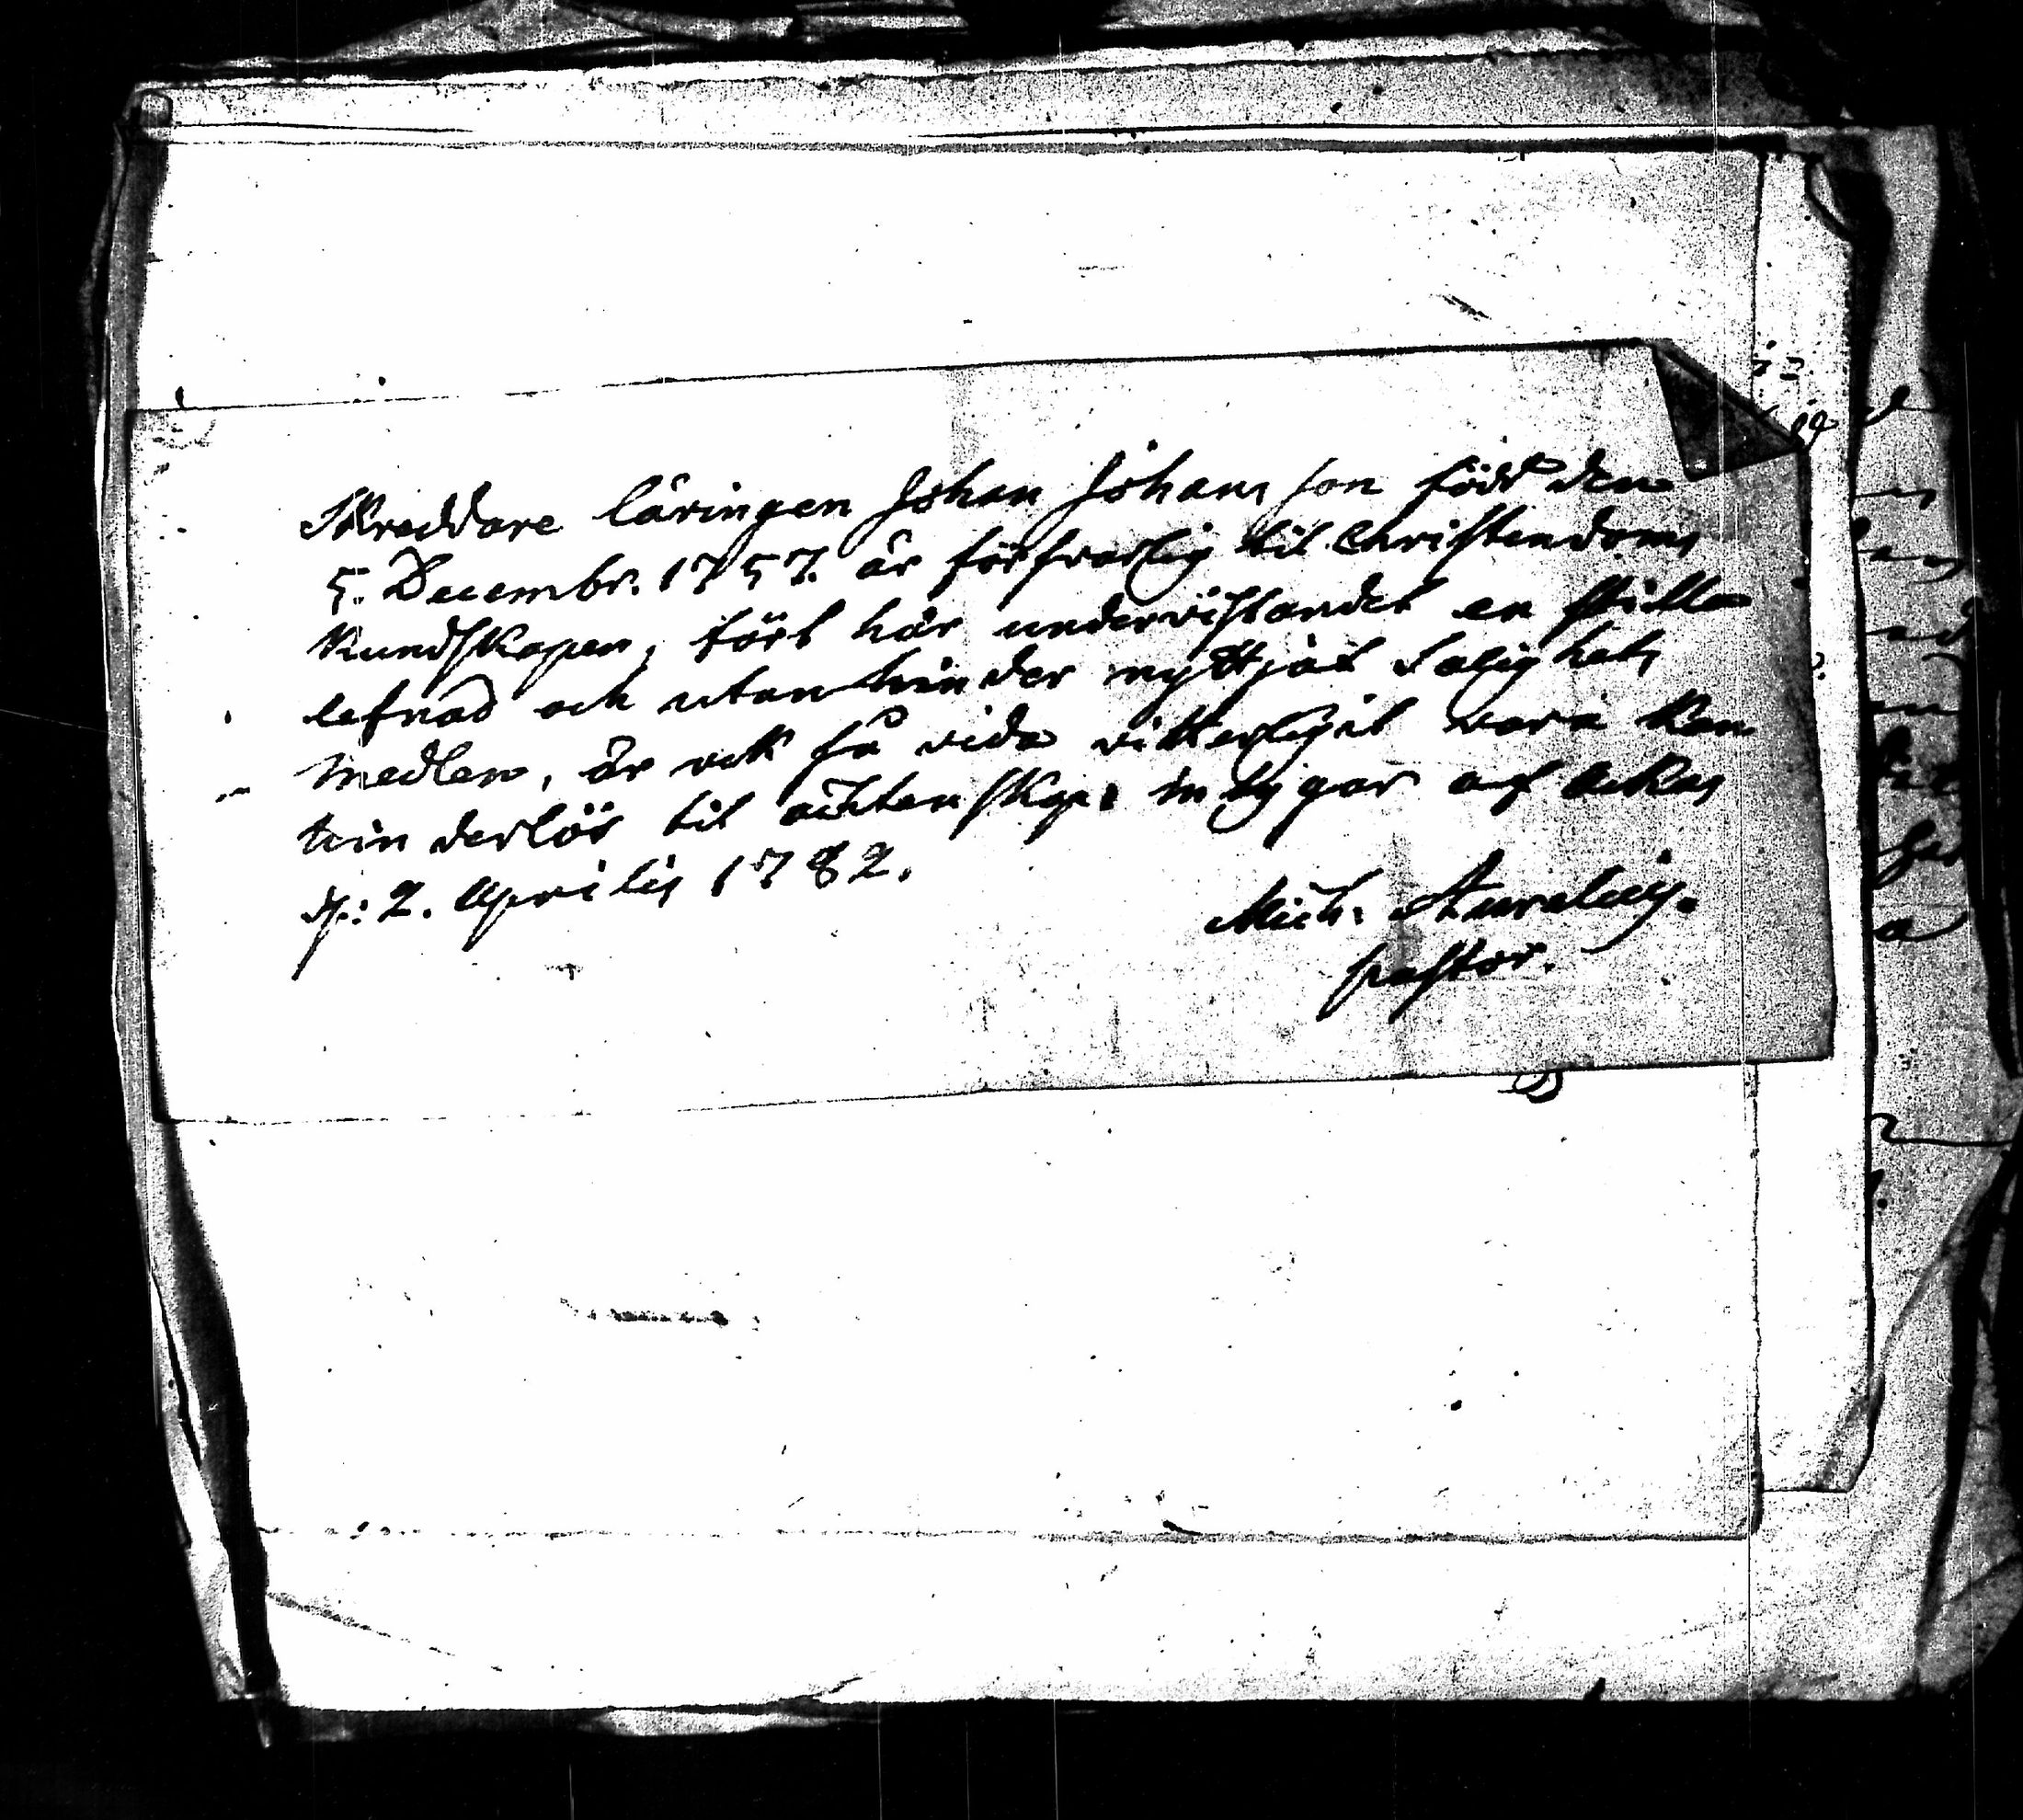 Skreddare läringen Johan Johans son född den
5. Decembr. 1757. är förfvarlig til Christendoms
kundskapen, fört här undervistandet en stilla
lefnad och utan hinder nyttjat Salighets
medlen, är ock så vida vitterligit vara kan
hinderlös til ächtenskap. intygar af Ackas
dp: 2. Aprilis 1782.
Mich. Aurelius.
pastor.